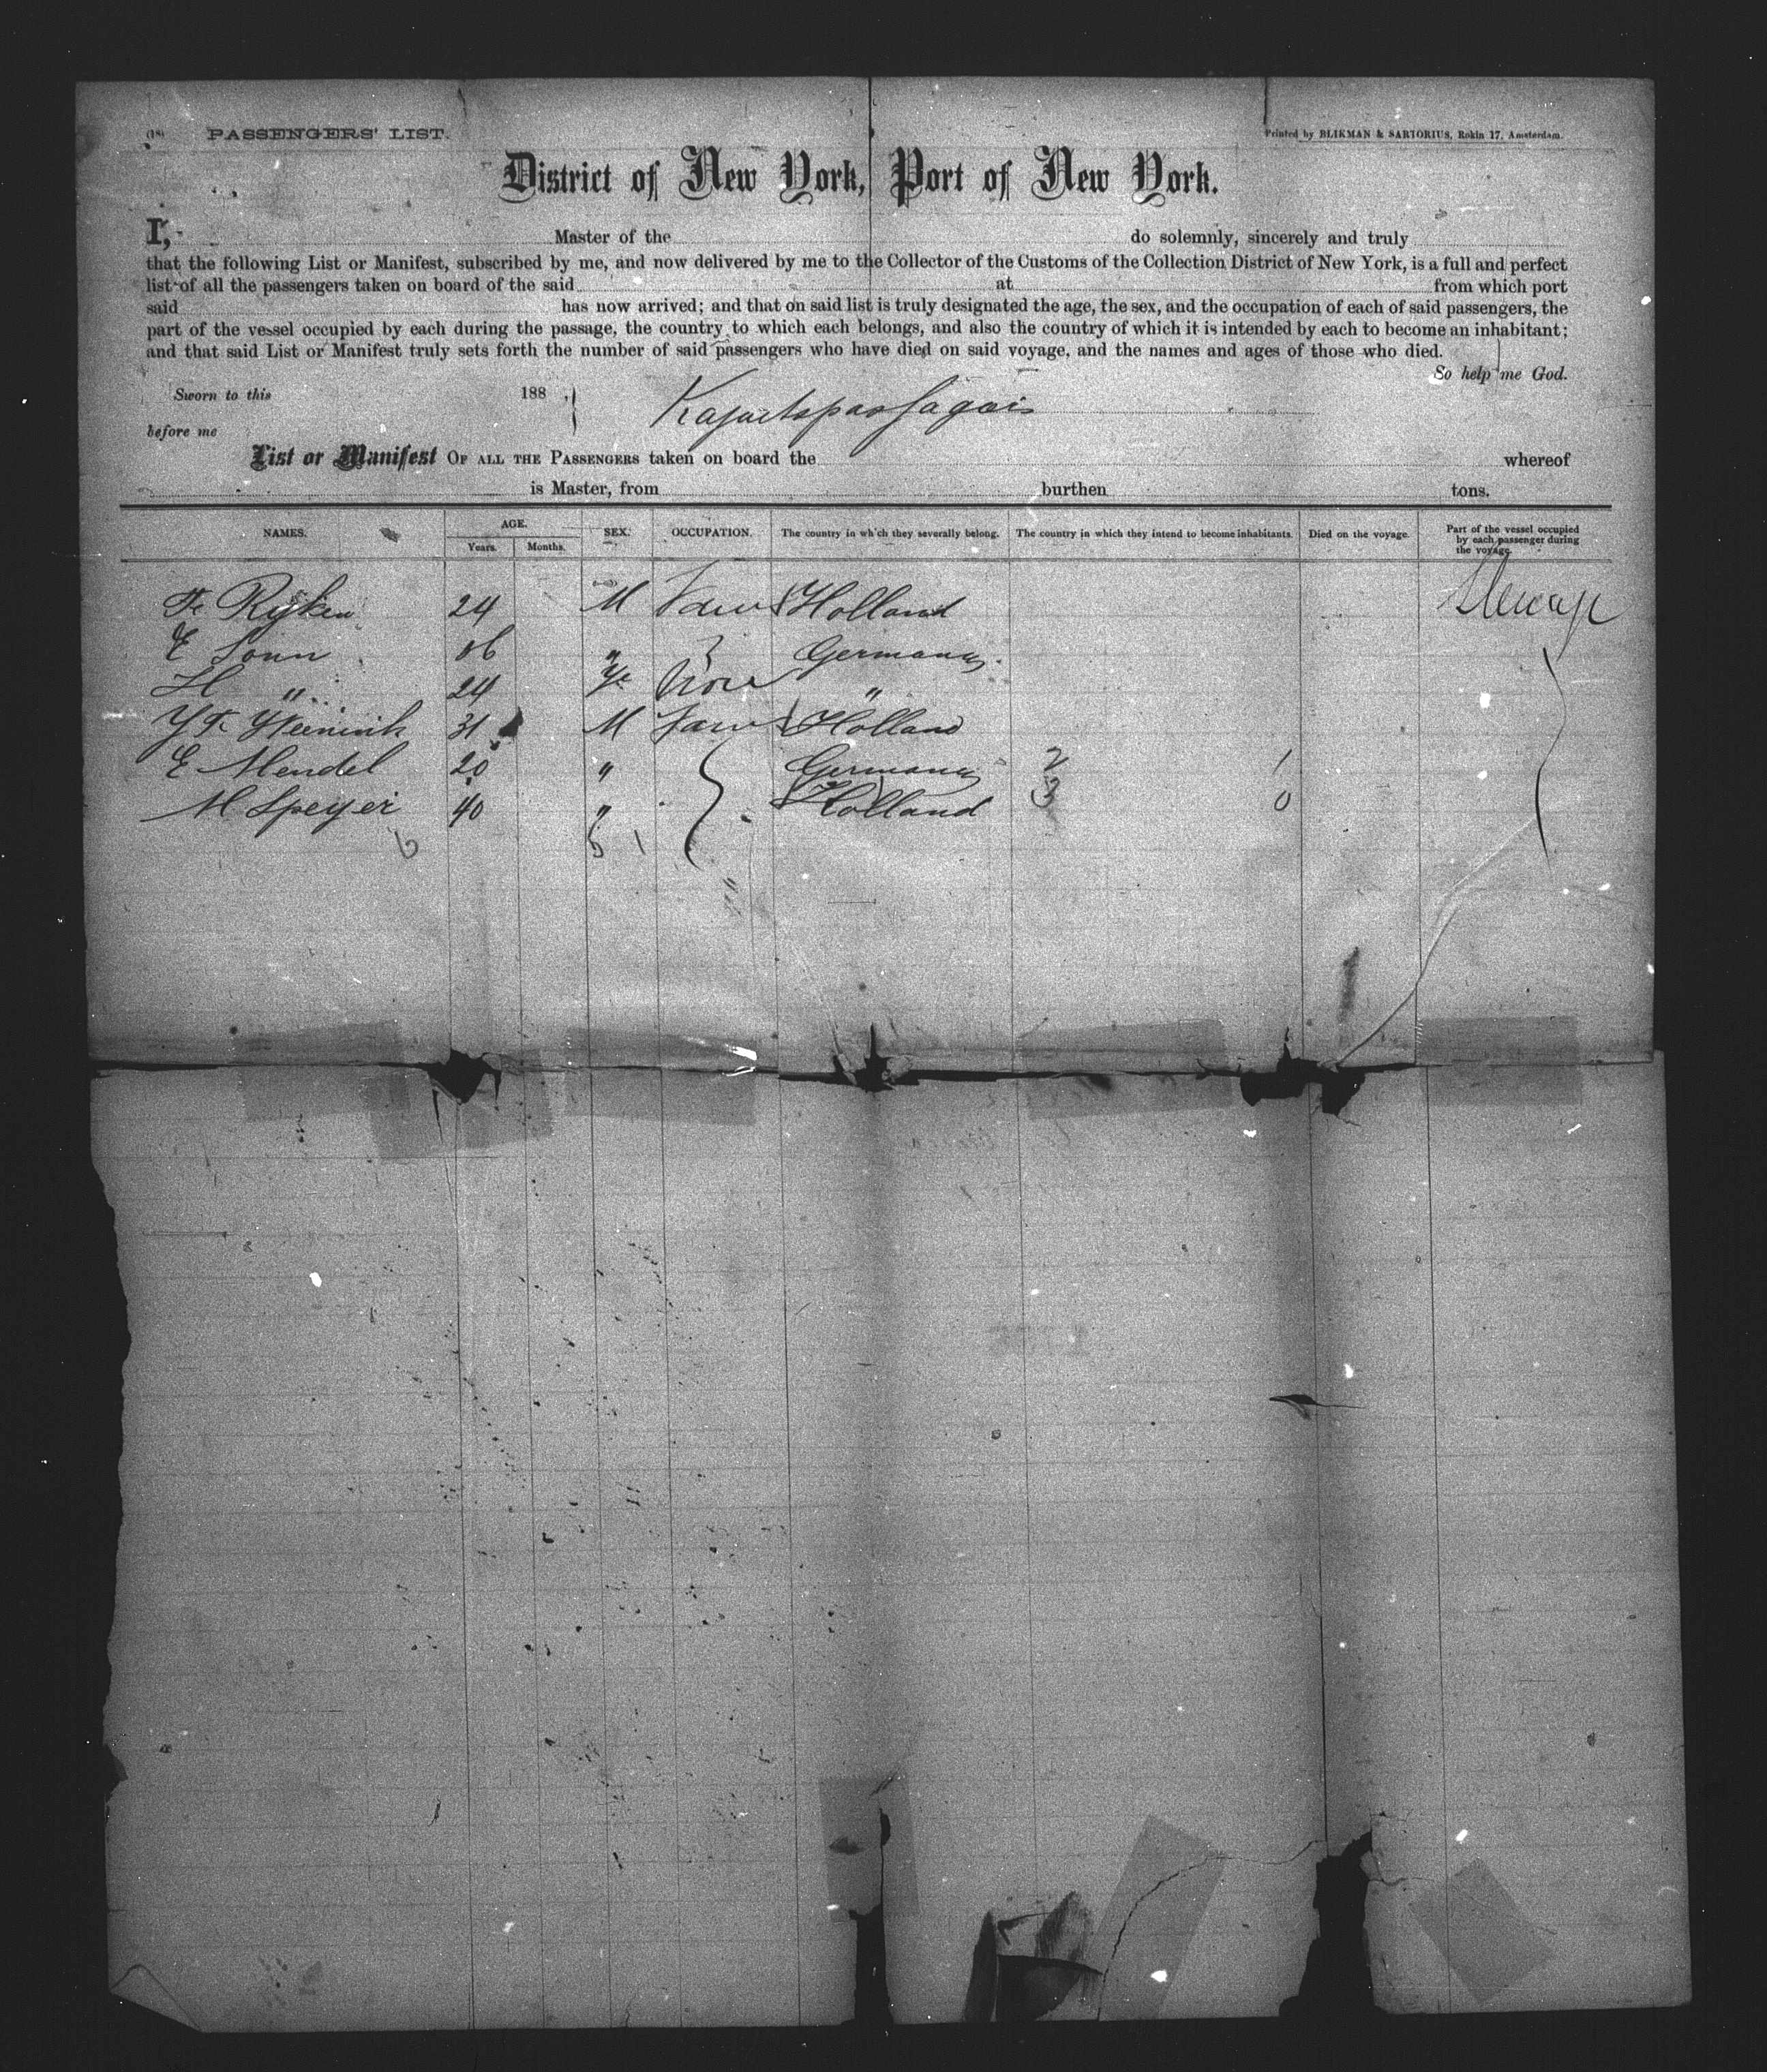 (18) PASSENGERS' LIST.
Printed by BLIKMAN & SARTORIUS, Rokin 17, Amsterdam.
District of New York, Port of New York.
I, Master of the do solemnly, sincerely and truly
that the following List or Manifest, subscribed by me, and now delivered by me to the Collector of the Customs of the Collection District of New York, is a full and perfect
list of all the passengers taken on board of the said at from which port
said has now arrived; and that on said list is truly designated the age, the sex, and the occupation of each of said passengers, the
part of the vessel occupied by each during the passage, the country to which each belongs, and also the country of which it is intended by each to become an inhabitant;
and that said List or Manifest truly sets forth the number of said passengers who have died on said voyage, and the names and ages of those who died.
So help me God.
Sworn to this 188 ,
before me
List or Manifest OF ALL THE PASSENGERS taken on board the whereof
is Master, from burthen tons.
NAMES. AGE. Years. Months. SEX. OCCUPATION. The country in which they severally belong. The country in which they intend to become inhabitants. Died on the voyage. Part of the vessel occupied by each passenger during the voyage.
Rijken 24 M Holland
E Sonn Germany
H " 24 None "
31 M Holland
E Mendel 20 " Germany 2 1
M Speyer 40 " Holland 3 0
6 5 1